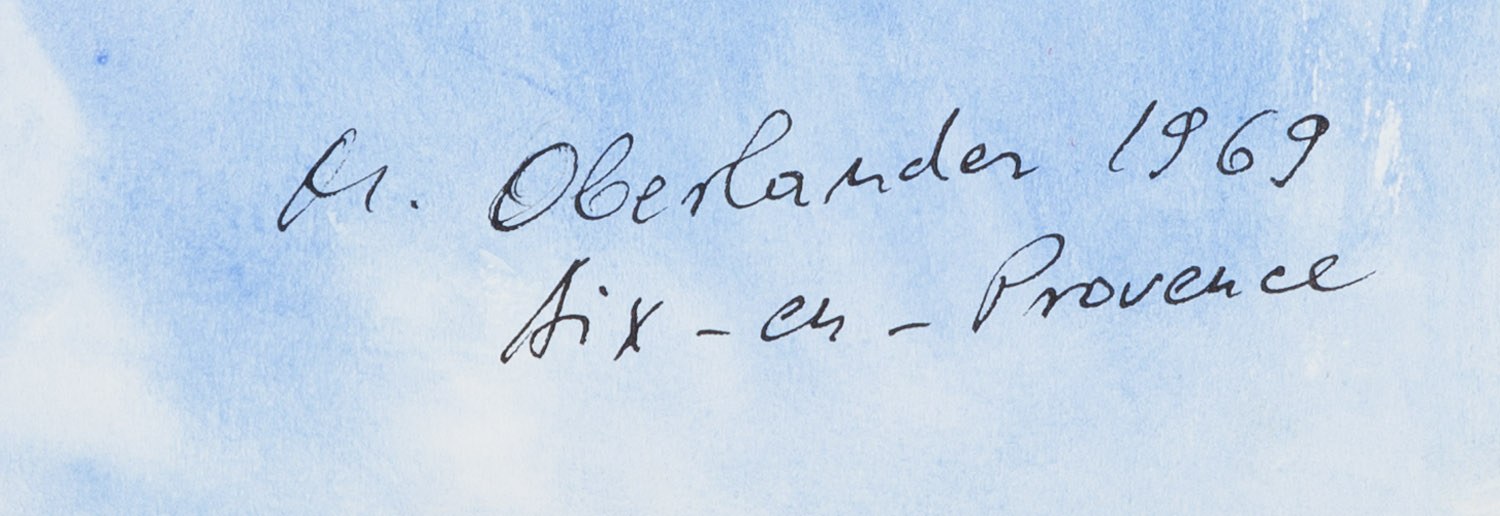 M. Oberlander 1969
Aix-en-Provence